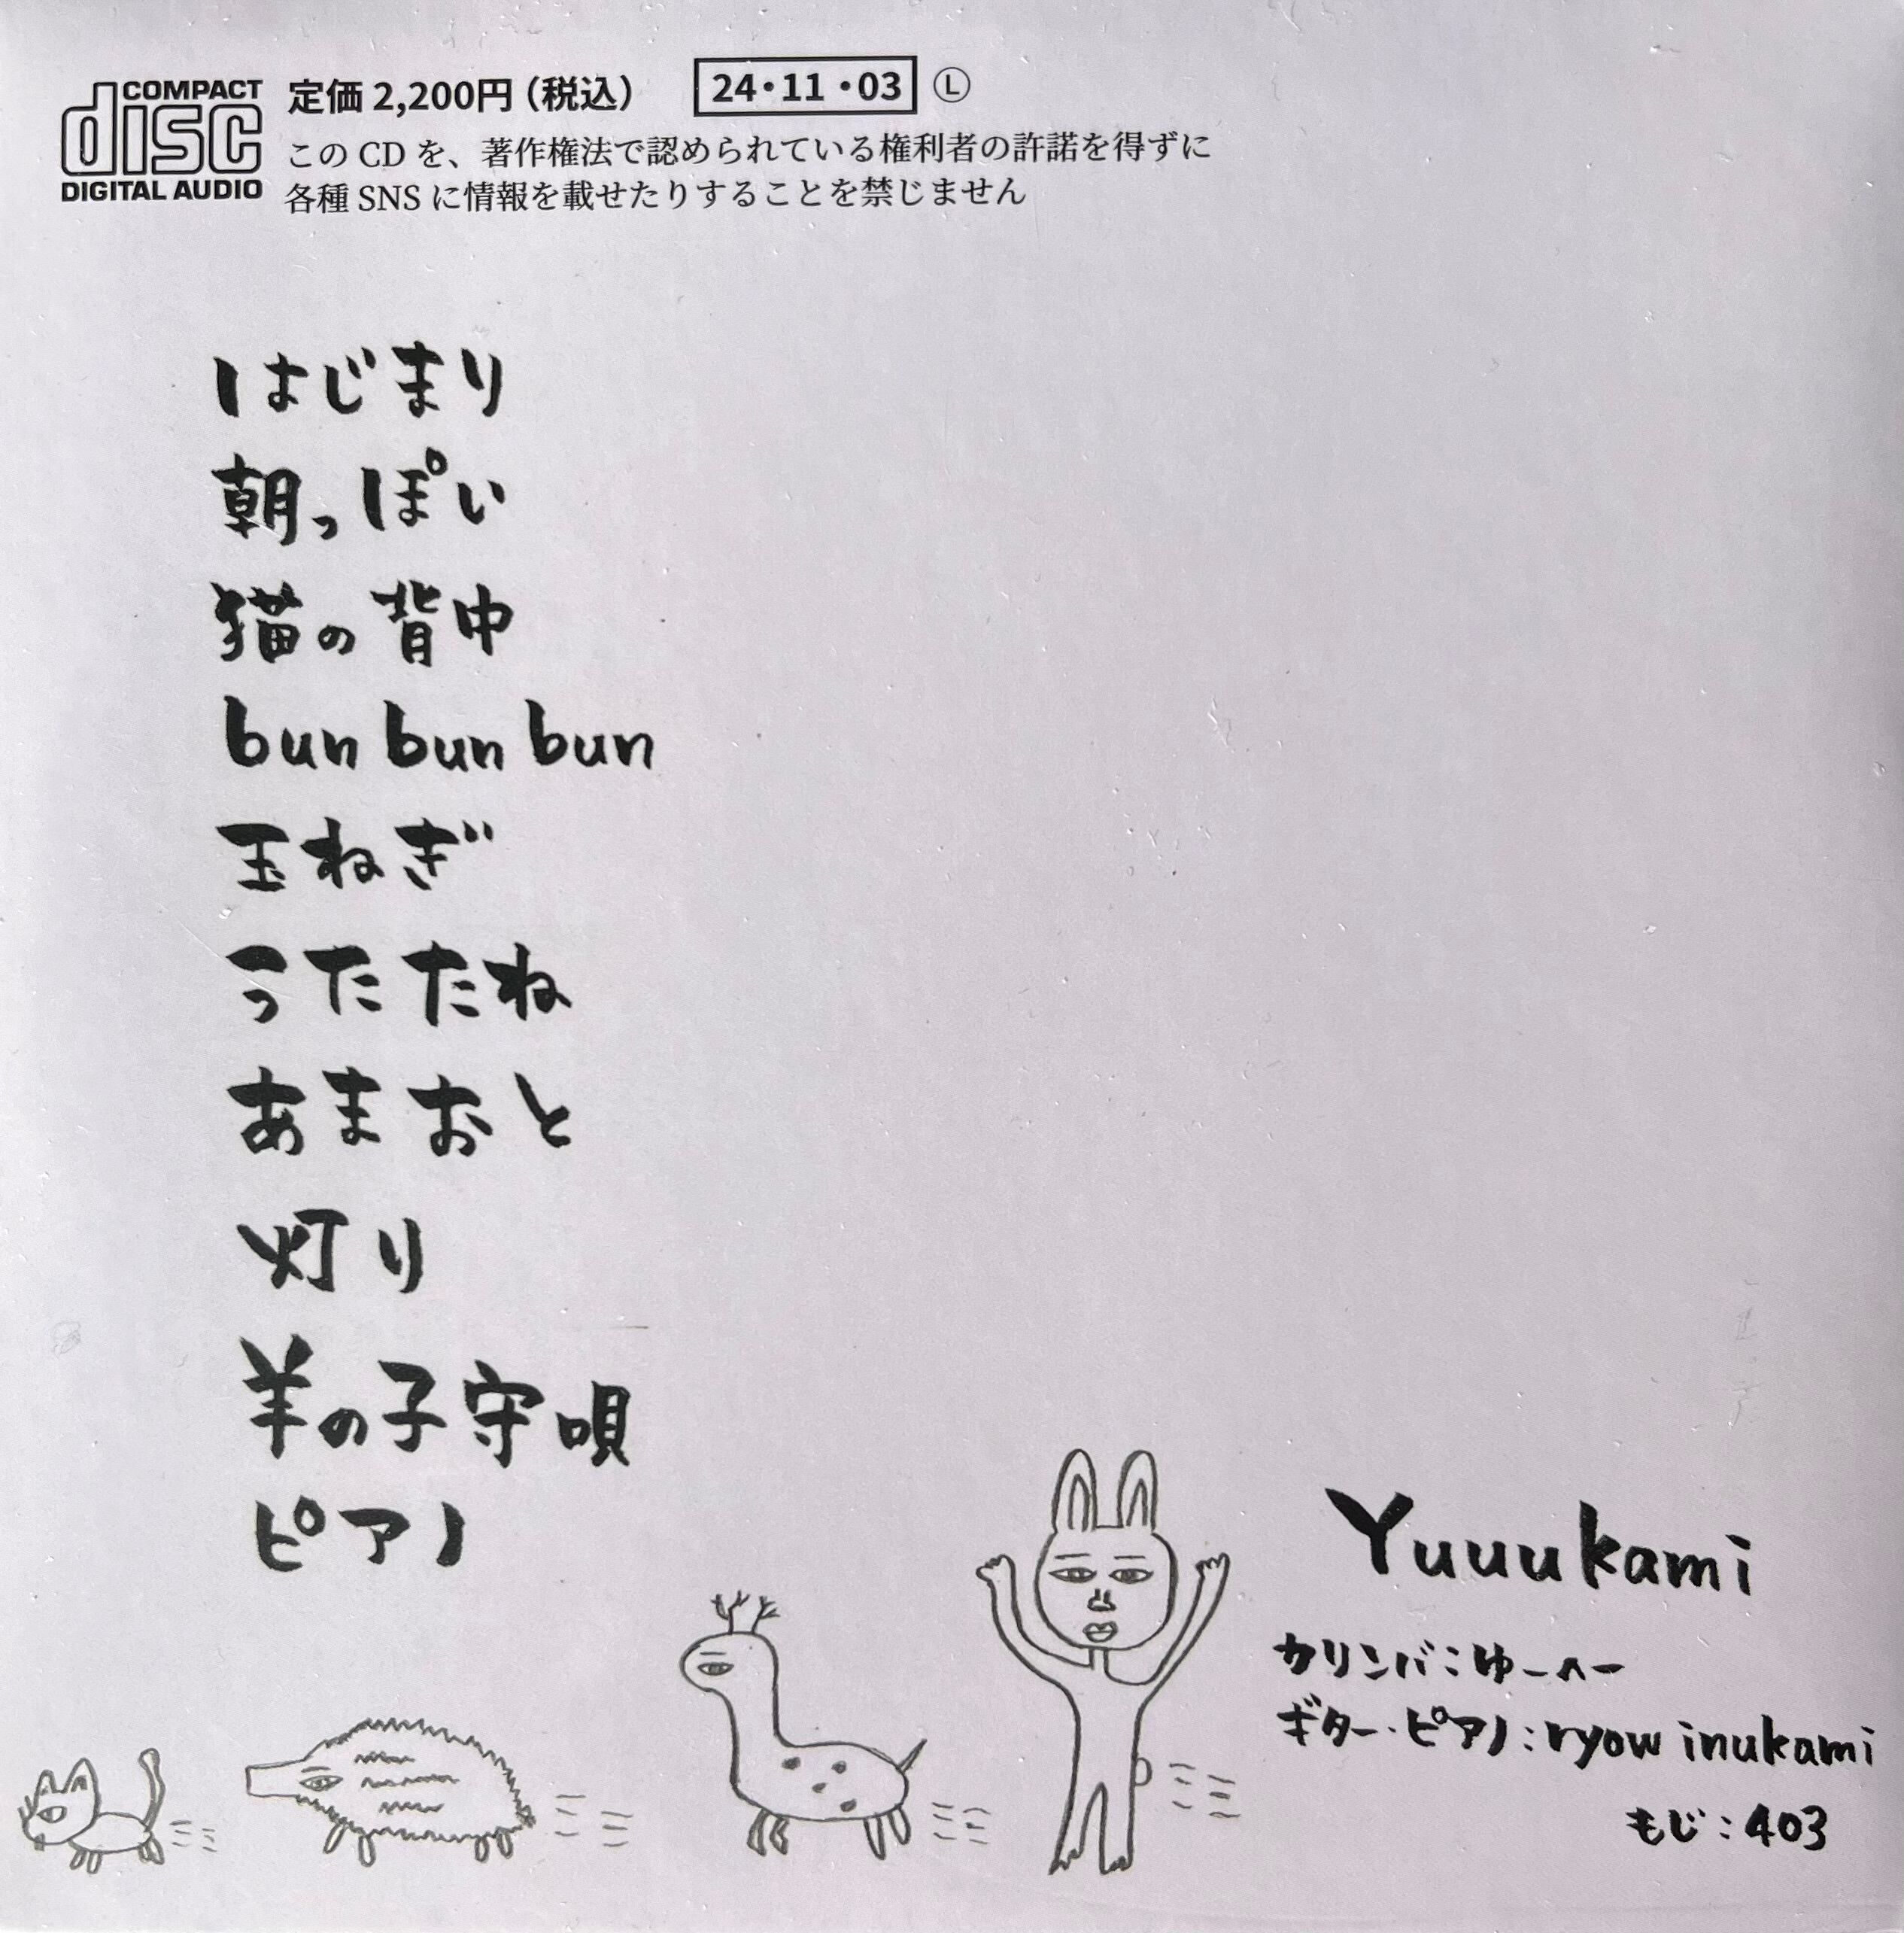 COMPACT
disc
DIGITAL AUDIO
定価 2,200円（税込） 24・11・03 Ⓛ
この CD を、著作権法で認められている権利者の許諾を得ずに
各種 SNS に情報を載せたりすることを禁じません
はじまり
朝っぽい
猫の背中
bun bun bun
玉ねぎ
うたたね
あまおと
灯り
羊の子守唄
ピアノ
Yuuukami
カリンバ：ゆーへー
ギター・ピアノ：ryow inukami
もじ：403